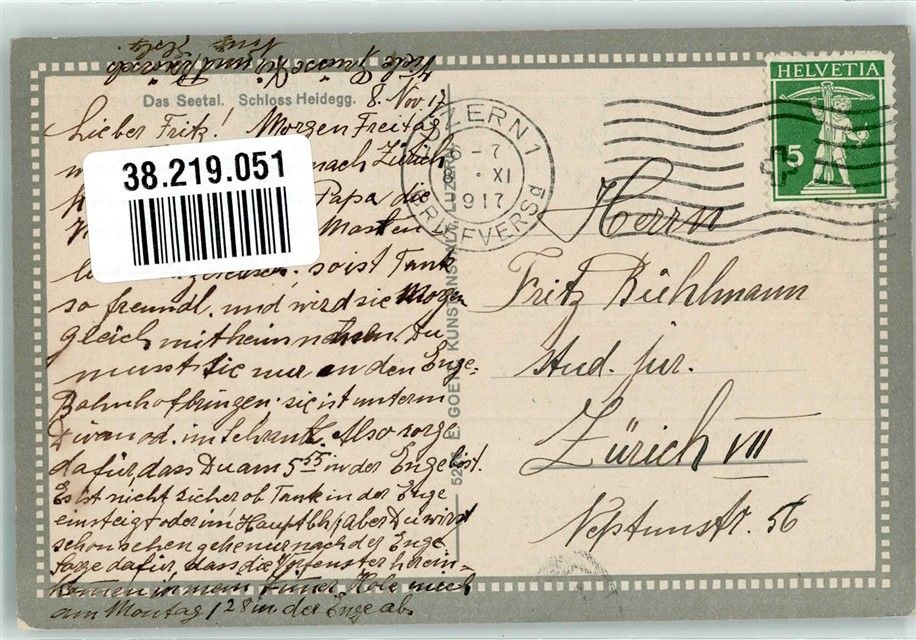 Viele Grüsse
Das Seetal. Schloss Heidegg.
8. Nov 17
Lieber Fritz! Morgen Freitag
nach Zürich
Papa die
Masten
so ist Tante
so freundl. und wird sie Morgen
gleich mit heim nehmen. Du
musst sie nur an den Enge-
Bahnhof bringen. sie ist unterm
Divan od. im Schrank. Also sorge
dafür, dass Du am 5 55 in der Enge bist.
Es ist nicht sicher ob Tante in der Enge
einsteigt oder im Hauptbh, aber Du wirst
schon sehen gehe nur nach der Enge
Sorge dafür, dass die Vorfenster herein-
kommen in mein Zimer. Hole mich
am Montag 1 28 in der Enge ab.
38.219.051
HELVETIA
5
LUZERN 1
8. XI
1917
BRIEFVERSD
E. GOETZ KUNSTANSTALT LUZERN
Herrn
Fritz Bühlmann
stud. jur.
Zürich VII
Neptunstr. 56